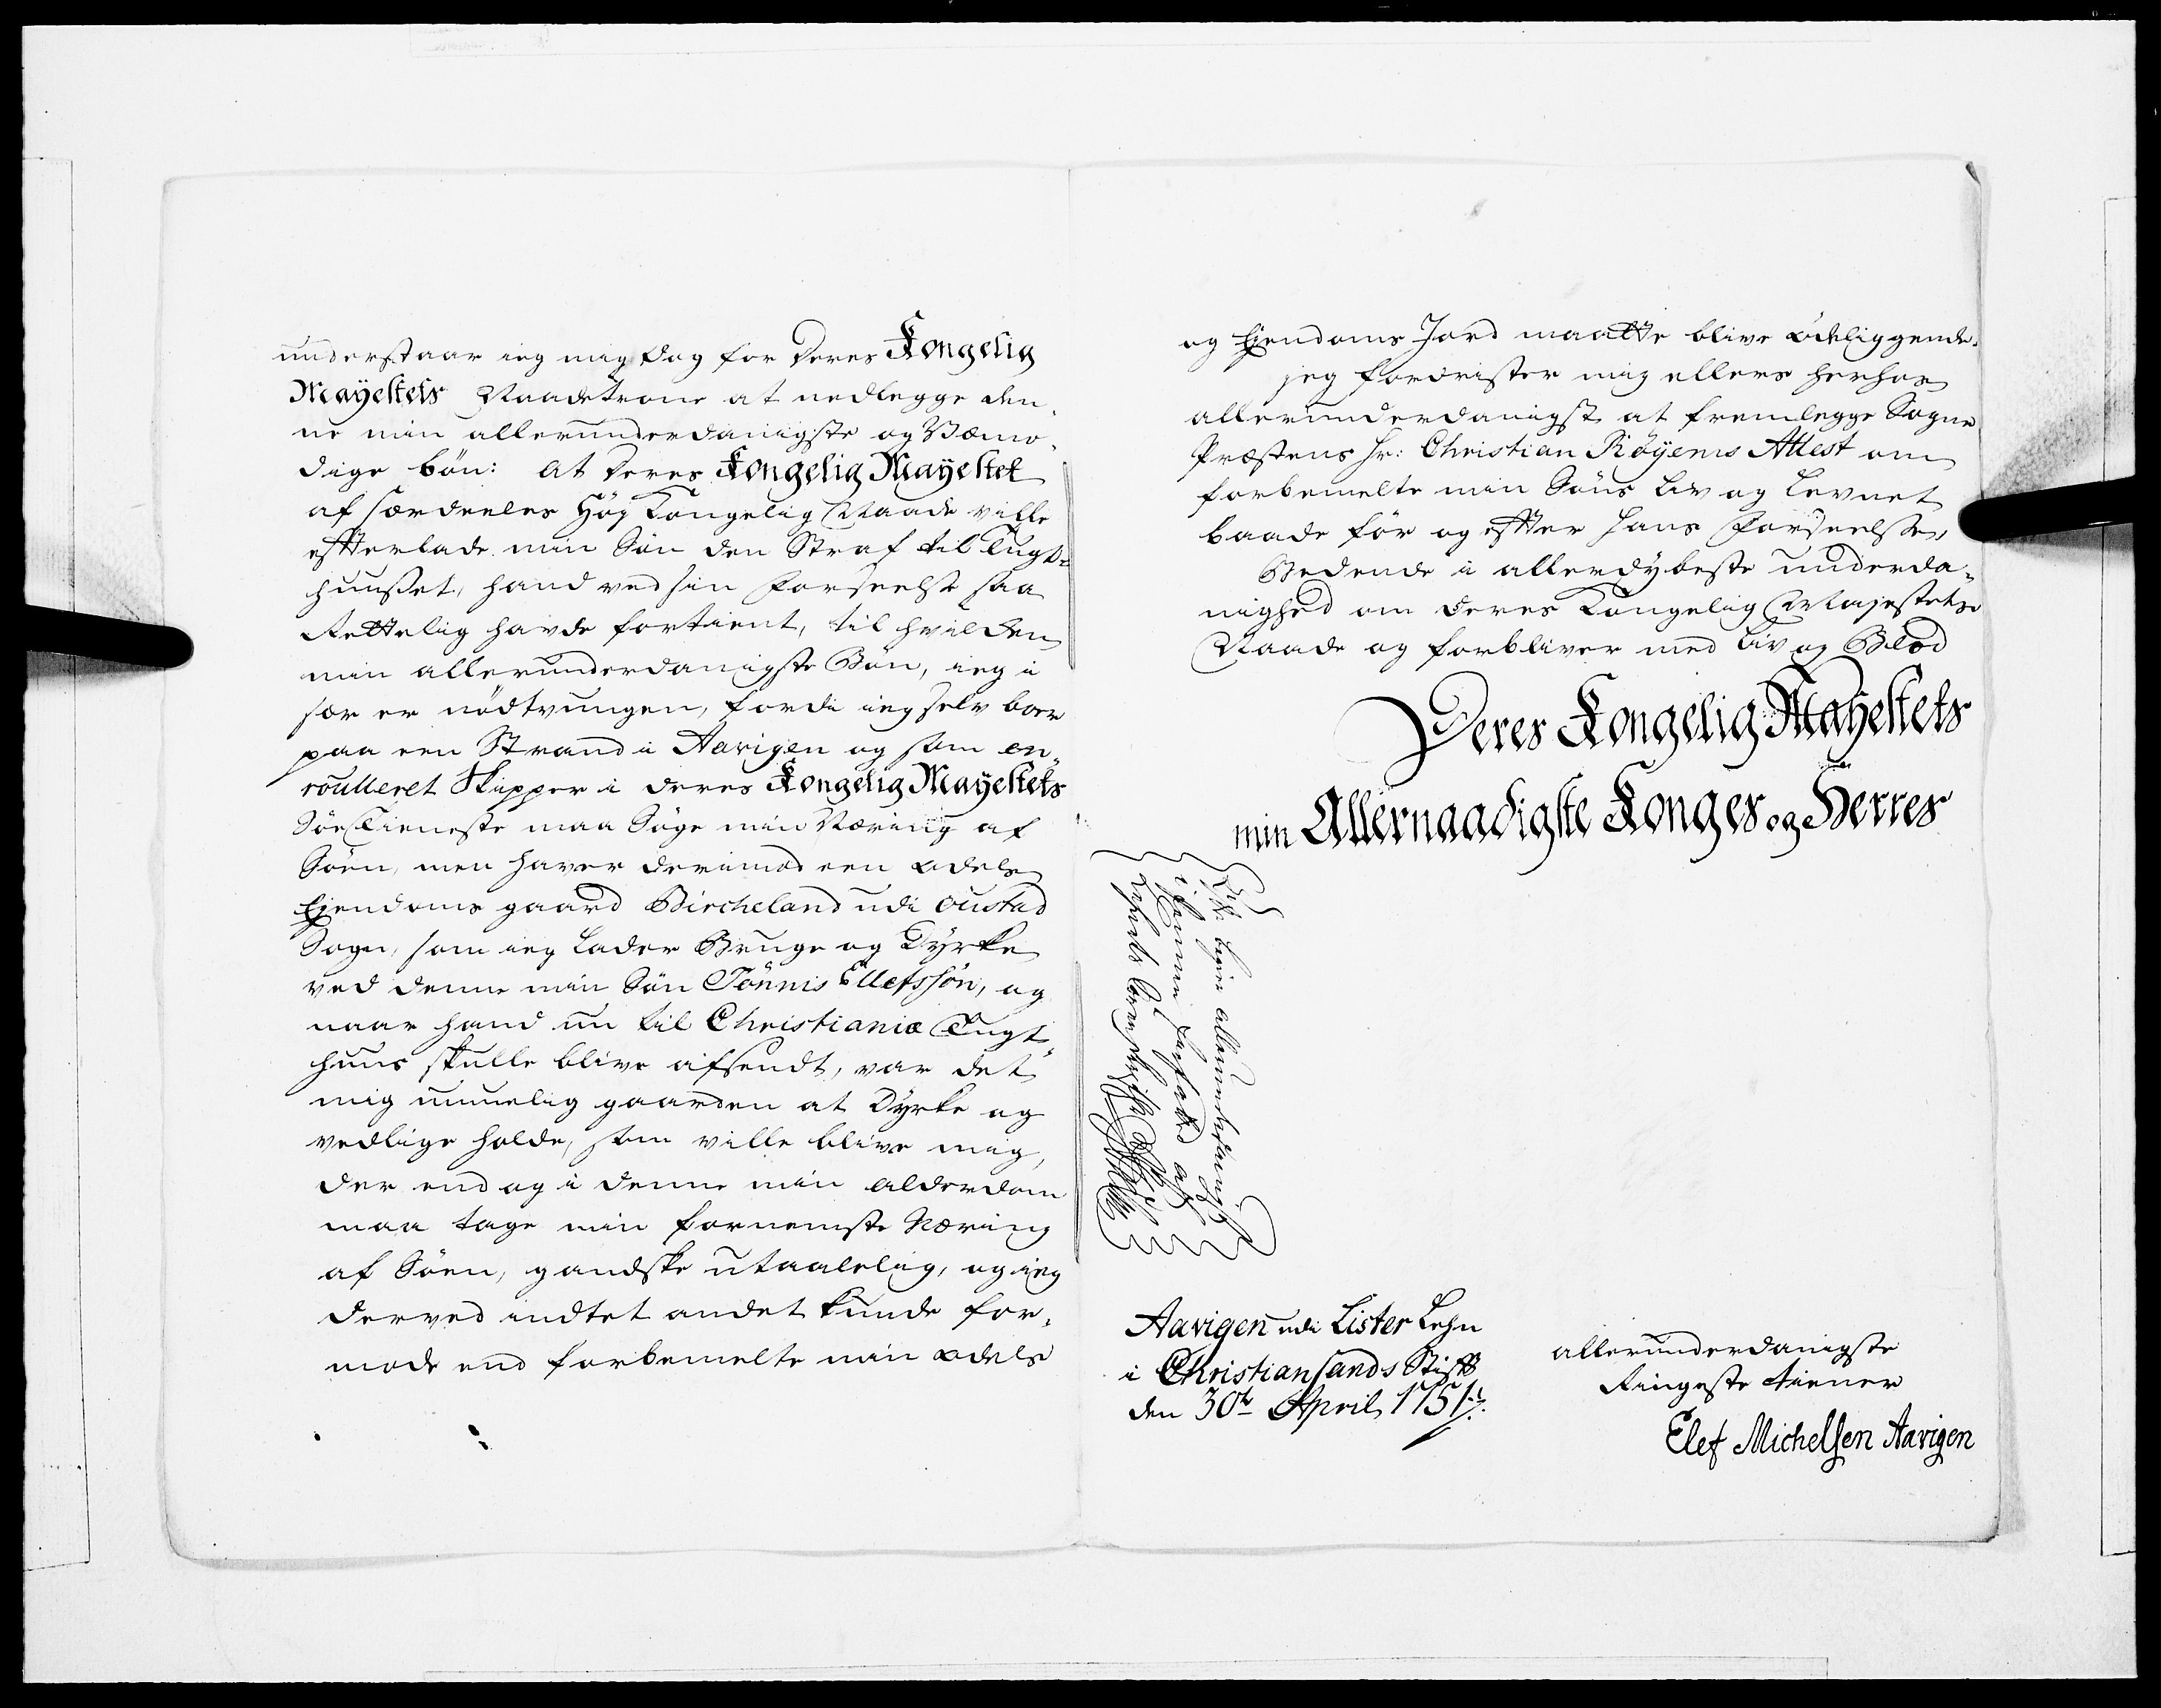 understaar ieg mig dog for Deres Kongelig
Mayestets Naadetrone at nedlegge den,
ne min allerunderdanigste og Væmo,
dige bön: At Deres Kongelig Mayestet
af særdeeles Höy Kongelig Naade ville
efterlade min Sön den Straf til Tugt=
huuset, hand ved sin Forseelse saa
Rettelig havde fortient, til hvilken
min allerunderdanigste Bön, ieg i
sær er nödtvungen, fordi ieg selv boer
paa een Strand i Aavigen og som en,
roulleret Skipper i Deres Kongelig Mayestets
Söe Tieneste maa Söge min Næring af
Söen, men haver derimod een odels
Ejendoms gaard Bircheland udi Oustad
Sogn, som ieg lader Bruge og Dyrke
ved denne min Sön Tönnis Ellefssön, og
naar hand nu til Christianiæ Tugt,
huus skulle blive afsendt, var det
mig umuelig gaarden at Dyrke og
vedlige holde, som ville blive mig,
der end og i denne min alderdom
maa tage min fornemste Næring
af Söen, gandske utaalelig, og ieg
derved indtet andet kunde for,
mode end forbemelte min odels
og Ejendoms Jord maatte blive ödeliggende.
jeg fordrister mig ellers herhos
allerunderdanigst at fremlegge Sogne
Præstens Hr: Christian Röyems Attest om
forbemelte min Söns Liv og Levnet
baade för og efter hans Forseelse,
Bedende i allerdybeste underda,
nighed om Deres Kongelig Majestets
Naade og forbliver med Liv og Blod
Deres Kongelig Mayestets
min Allernaadigste Konges og Herres
allerunderdanigst
Aavigen udi Lister Lehn
i Christiansands Stift
den 30te April 1751
allerunderdanigste
Ringeste tiener
Elef Michelsen Aavigen